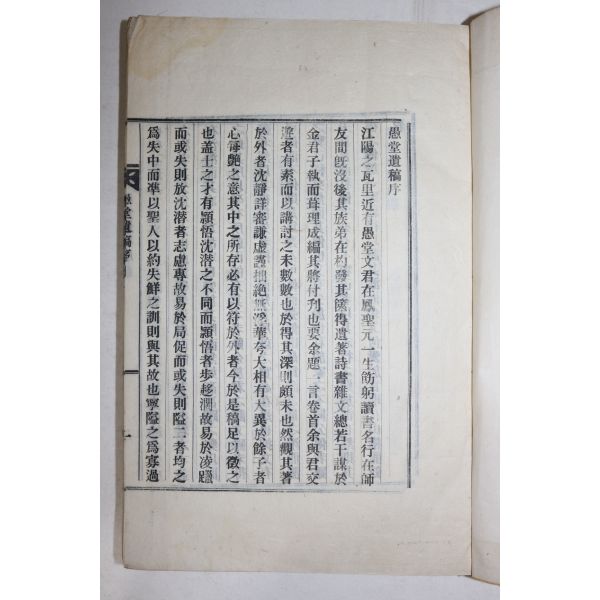 愚堂遺稿序
江陽之瓦里近有愚堂文君在鳳聖元一生飭躬讀書名行在師
友間旣沒後其族弟在杓發其篋得遺著詩書雜文總若干謀於
金君子執而葺理成編其將付刊也要余題一言卷首余與君交
遊者有素而以講討之未數數也於得其深則頗未也然觀其著
於外者沈靜詳審謙虛謹拙絶無浮華夸大相有大異於餘子者
心每艶之意其中之所存必有以符於外者今於是稿足以徵之
也盖士之才有頴悟沈潜之不同而頴悟者步趍濶故易於凌躐
而或失則放沈潜者志慮專故易於局促而或失則隘二者均之
爲失中而準以聖人以約失鮮之訓則與其故也寧隘之爲寡過
愚堂遺稿序
一